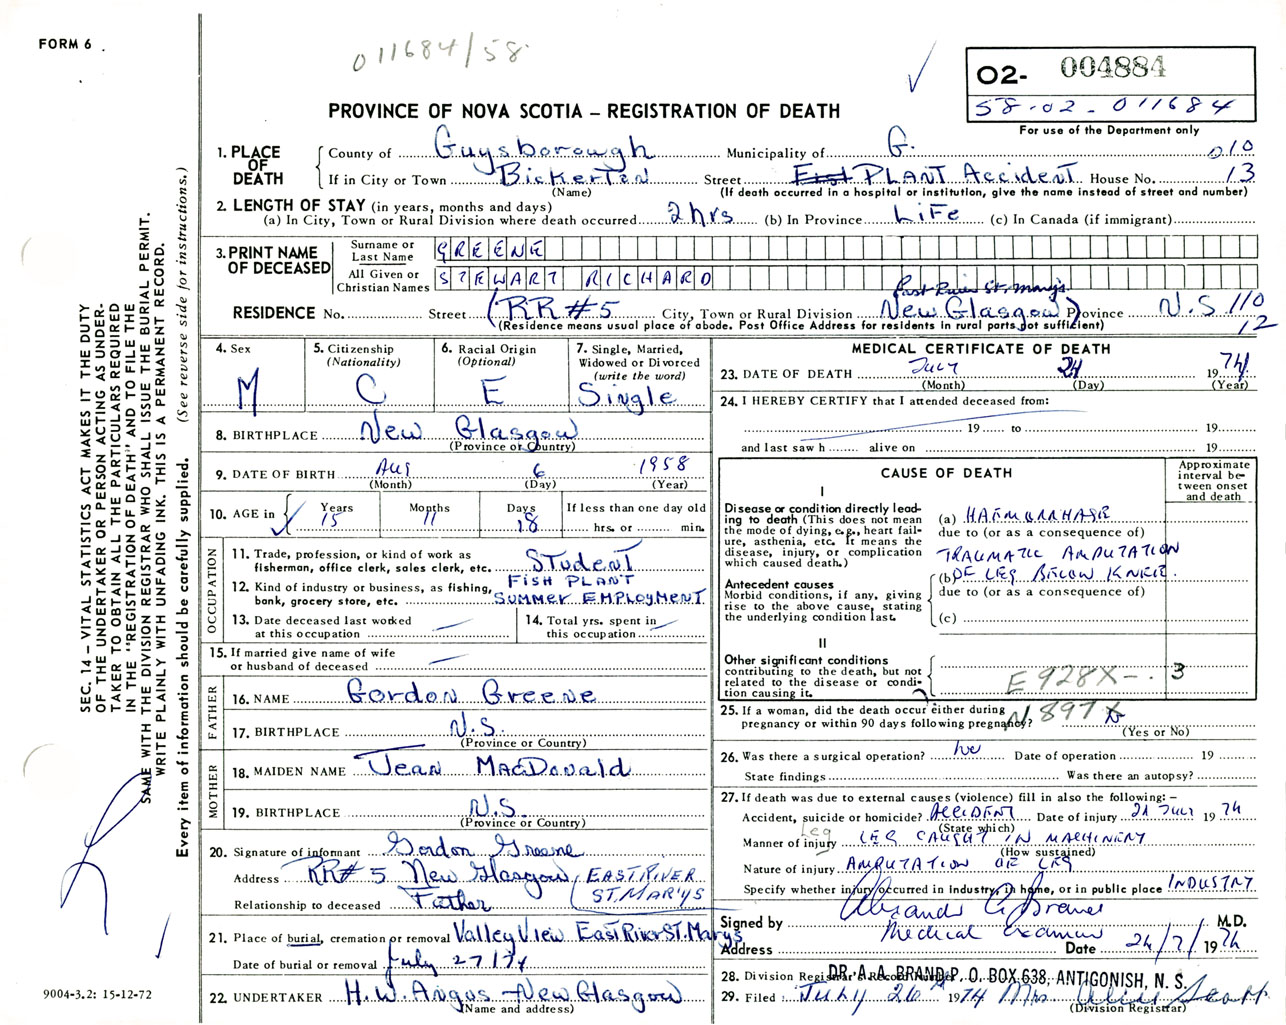 FORM 6
011684/58
O2- 004884
58-02-011684
For use of the Department only
PROVINCE OF NOVA SCOTIA – REGISTRATION OF DEATH
SEC. 14 – VITAL STATISTICS ACT MAKES IT THE DUTY
OF THE UNDERTAKER OR PERSON ACTING AS UNDER-
TAKER TO OBTAIN ALL THE PARTICULARS REQUIRED
IN THE "REGISTRATION OF DEATH" AND TO FILE THE
SAME WITH THE DIVISION REGISTRAR WHO SHALL ISSUE THE BURIAL PERMIT.
WRITE PLAINLY WITH UNFADING INK. THIS IS A PERMANENT RECORD.
Every item of information should be carefully supplied. (See reverse side for instructions.)
1. PLACE OF DEATH
County of Guysborough Municipality of G. 010
If in City or Town Bickerton Street PLANT Accident House No. 13
(Name) (If death occurred in a hospital or institution, give the name instead of street and number)
2. LENGTH OF STAY (in years, months and days)
(a) In City, Town or Rural Division where death occurred 2 hrs (b) In Province LiFe (c) In Canada (if immigrant)
3. PRINT NAME OF DECEASED
Surname or Last Name GREENE
All Given or Christian Names STEWART RICHARD
East River St. Mary's
RESIDENCE No. Street (RR #5 City, Town or Rural Division New Glasgow) Province N.S 110
(Residence means usual place of abode. Post Office Address for residents in rural parts not sufficient) 12
4. Sex M
5. Citizenship (Nationality) C
6. Racial Origin (Optional) E
7. Single, Married, Widowed or Divorced (write the word) Single
8. BIRTHPLACE New Glasgow
(Province or Country)
9. DATE OF BIRTH Aug 6 1958
(Month) (Day) (Year)
10. AGE in Years 15 Months 11 Days 18 If less than one day old hrs. or min.
OCCUPATION
11. Trade, profession, or kind of work as fisherman, office clerk, sales clerk, etc. STudenT
12. Kind of industry or business, as fishing, bank, grocery store, etc. FISH PLANT SUMMER EMPLOYMENT
13. Date deceased last worked at this occupation
14. Total yrs. spent in this occupation
15. If married give name of wife or husband of deceased
FATHER
16. NAME Gordon Greene
17. BIRTHPLACE N.S.
(Province or Country)
MOTHER
18. MAIDEN NAME Jean MacDonald
19. BIRTHPLACE N.S.
(Province or Country)
20. Signature of informant Gordon Greene
Address RR# 5 New Glasgow (EAST RIVER
Relationship to deceased Father ST. MARY'S
21. Place of burial, cremation or removal Valley View East River ST. Marys
Date of burial or removal July 27/74
22. UNDERTAKER H.W. Angus – New Glasgow
(Name and address)
9004-3.2: 15-12-72
MEDICAL CERTIFICATE OF DEATH
23. DATE OF DEATH July 24 1974
(Month) (Day) (Year)
24. I HEREBY CERTIFY that I attended deceased from:
19 to 19
and last saw h alive on 19
CAUSE OF DEATH
Approximate interval between onset and death
I
Disease or condition directly leading to death (This does not mean the mode of dying, e.g., heart failure, asthenia, etc. It means the disease, injury, or complication which caused death.)
(a) HAEMORRHAGE
due to (or as a consequence of)
TRAUMATIC AMPUTATION
(b) OF LEG BELOW KNEE
due to (or as a consequence of)
(c)
Antecedent causes
Morbid conditions, if any, giving rise to the above cause, stating the underlying condition last.
II
Other significant conditions contributing to the death, but not related to the disease or condition causing it.
E928X-. 3
25. If a woman, did the death occur either during pregnancy or within 90 days following pregnancy? N897X
(Yes or No)
26. Was there a surgical operation? No Date of operation 19
State findings Was there an autopsy?
27. If death was due to external causes (violence) fill in also the following: –
Accident, suicide or homicide? ACCIDENT Date of injury 24 July 1974
(State which)
Leg
Manner of injury LEG CAUGHT IN MACHINERY
(How sustained)
Nature of injury AMPUTATION OF LEG
Specify whether injury occurred in industry, in home, or in public place INDUSTRY
Signed by M.D.
Address Medical Examiner Date 24/7/1974
28. Division Registrar's Record No. DR. A.A. BRAND P. O. BOX 638, ANTIGONISH, N. S.
29. Filed July 26 1974 Mrs Scott
(Division Registrar)